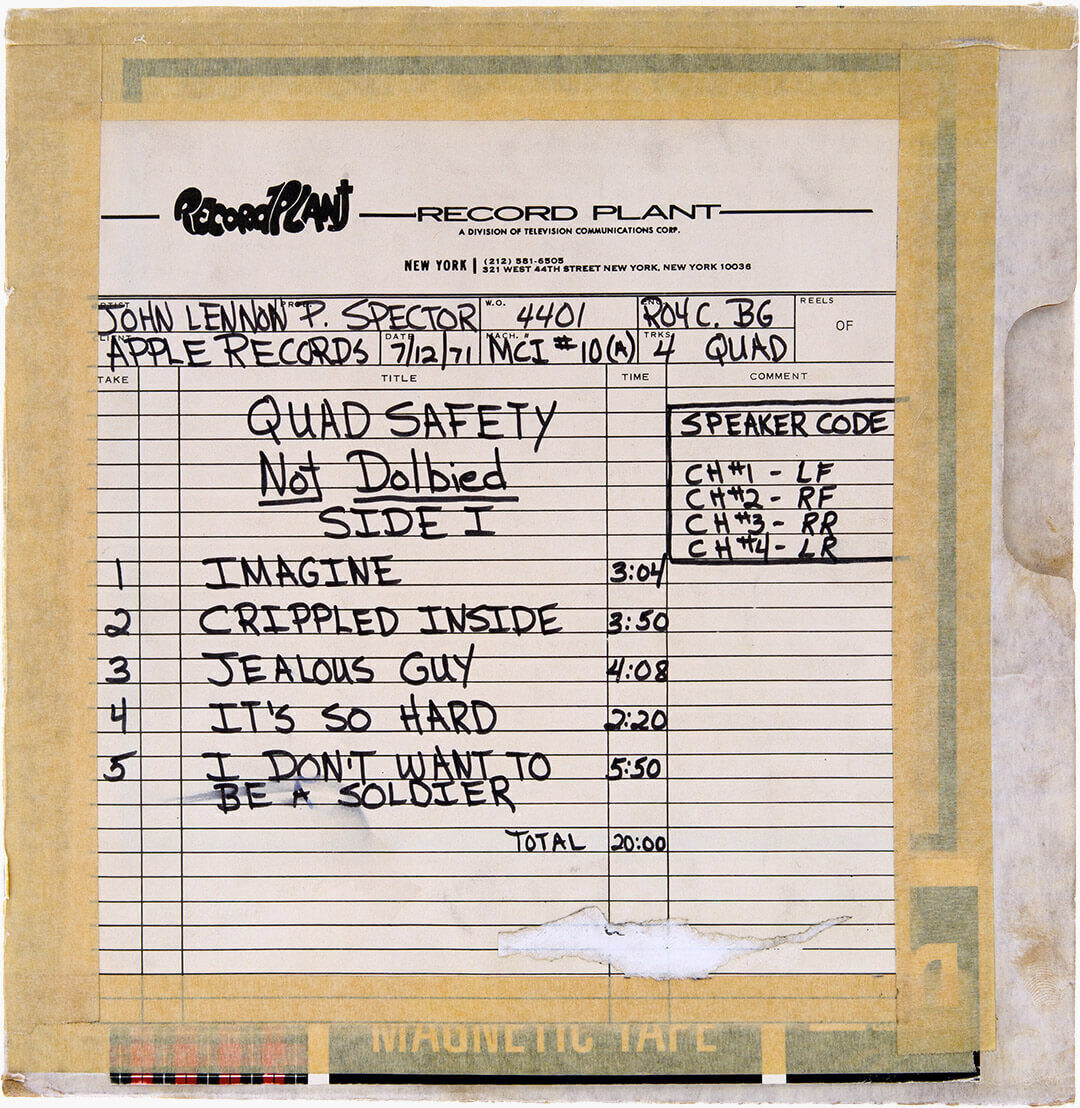 RECORD PLANT
RECORD PLANT
A DIVISION OF TELEVISION COMMUNICATIONS CORP.
NEW YORK | (212) 581-6505
321 WEST 44TH STREET NEW YORK, NEW YORK 10036
ARTIST PROD. W.O. ENG. REELS
JOHN LENNON P. SPECTOR 4401 ROY C. BG OF
CLIENT DATE MACH. # TRKS
APPLE RECORDS 7/12/71 MCI #10(A) 4 QUAD
TAKE TITLE TIME COMMENT
QUAD SAFETY
Not Dolbied
SIDE I
SPEAKER CODE
CH #1 - LF
CH #2 - RF
CH #3 - RR
CH #4 - LR
1 IMAGINE 3:04
2 CRIPPLED INSIDE 3:50
3 JEALOUS GUY 4:08
4 IT'S SO HARD 2:20
5 I DON'T WANT TO 5:50
BE A SOLDIER
TOTAL 20:00
MAGNETIC TAPE